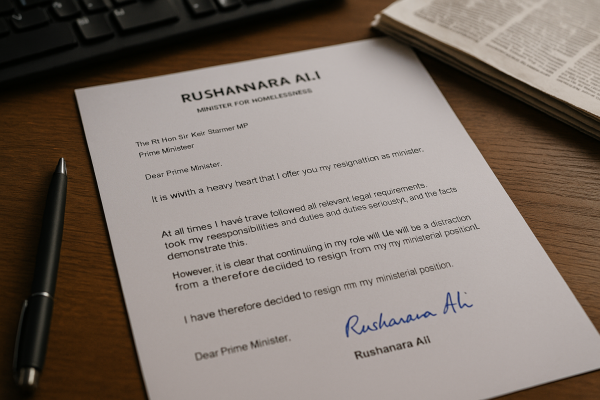 RUSHANNARA AI.I
MINISTER FOR HOMELESSNESS
The Rt Hon Sir Keir Starmer MP
Prime Ministeer
Dear Prime Minister.
It is wivith a heavy heart that I offer you my resignattion as minister,
At all times I havé trave followed all relevant legal requirements.
took my reesponsibilities and duties and duties seriouslyt, and the facts
demonstrate this.
However, it is clear that continuiing in my role will Ue will be a distraction
from a therefore deciided to resign from my my ministerial positionl.
I have therefore decided to resign mm my ministerial position.
Dear Prime Minister,
Rusharara Ali
Rushanara Ali